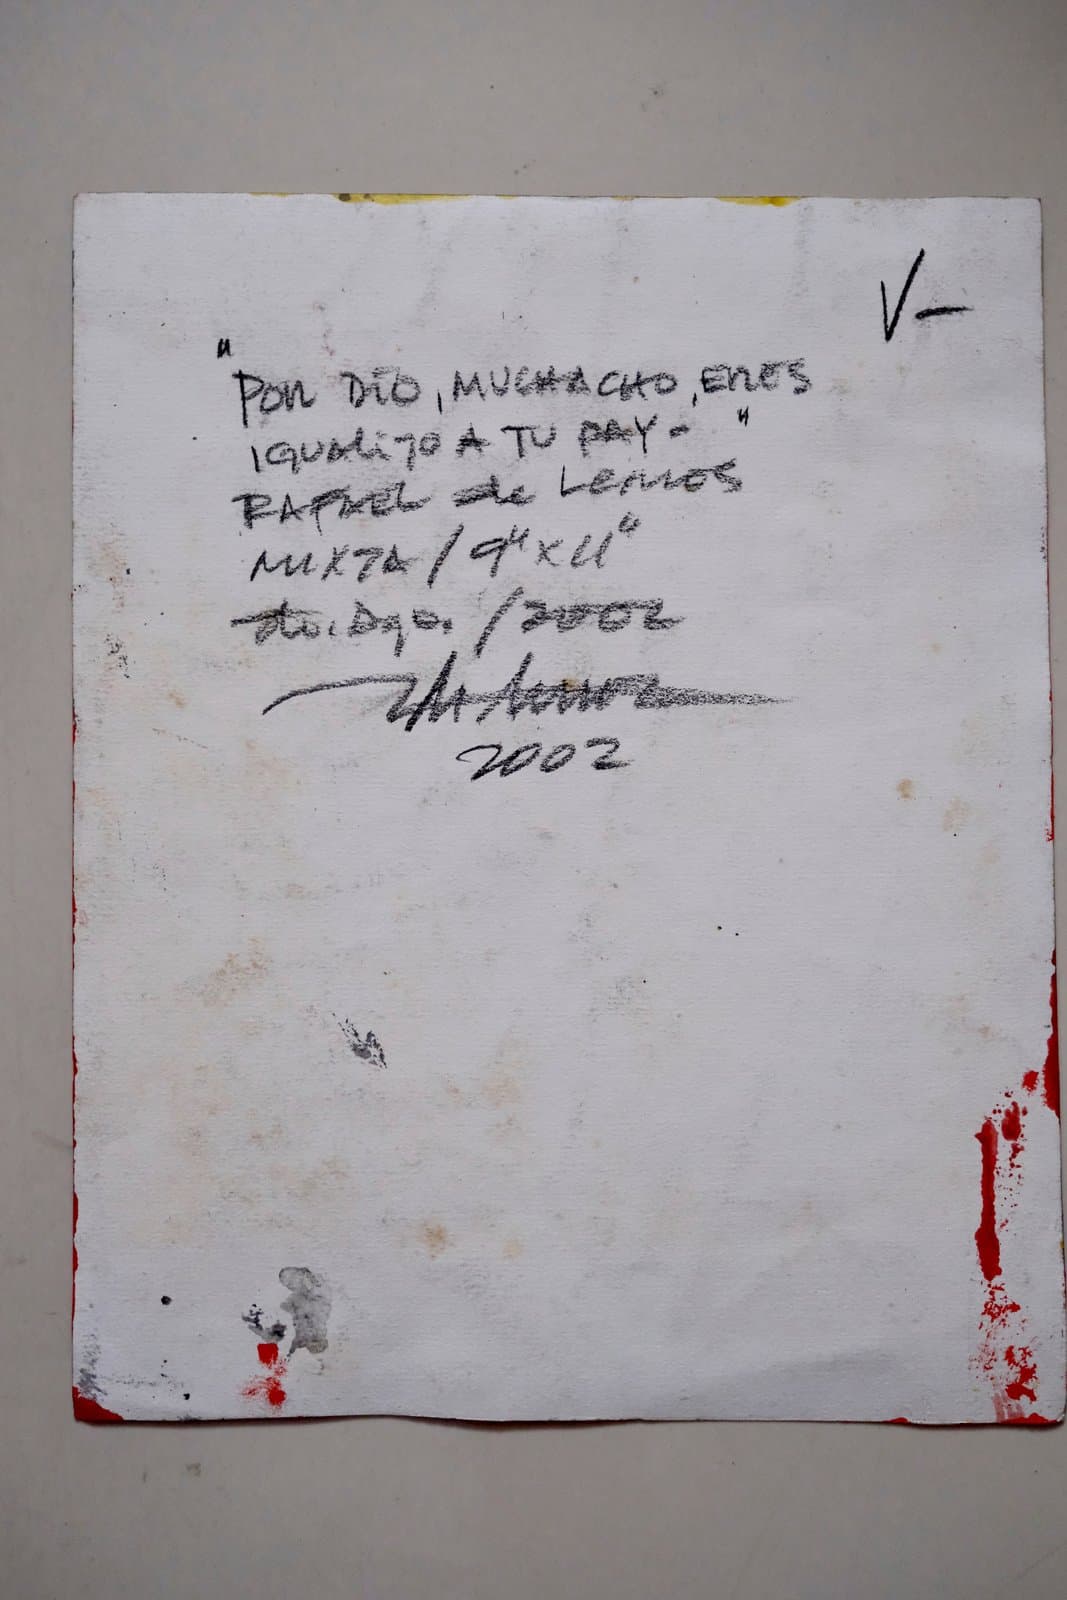 V-
"POR DIO, MUCHACHO, ERES
IGUALITO A TU PAY- "
RAFAEL de LEMOS
MIXTA / 9" X 11"
Sto. Dgo. / 2002
2002